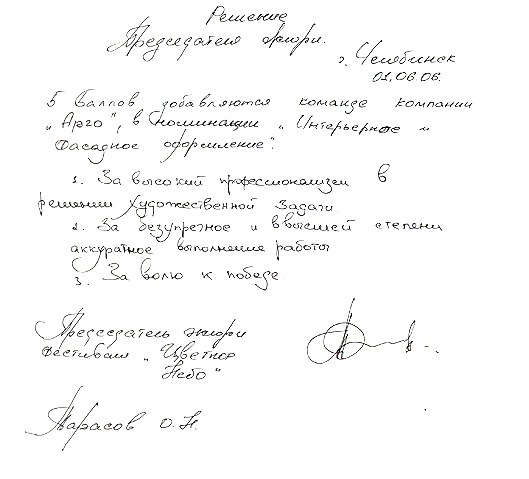 Решение
Председателя жюри.
г. Челябинск
01.06.06.
5 баллов добавляются команде компании
„Арго", в номинации „Интерьерное и
Фасадное оформление":
1. За высокий профессионализм в
решении художественной задачи
2. За безупречное и в высшей степени
аккуратное выполнение работы
3. За волю к победе
Председатель жюри
Фестиваля „Цветное
Небо"
Тарасов О.Н.